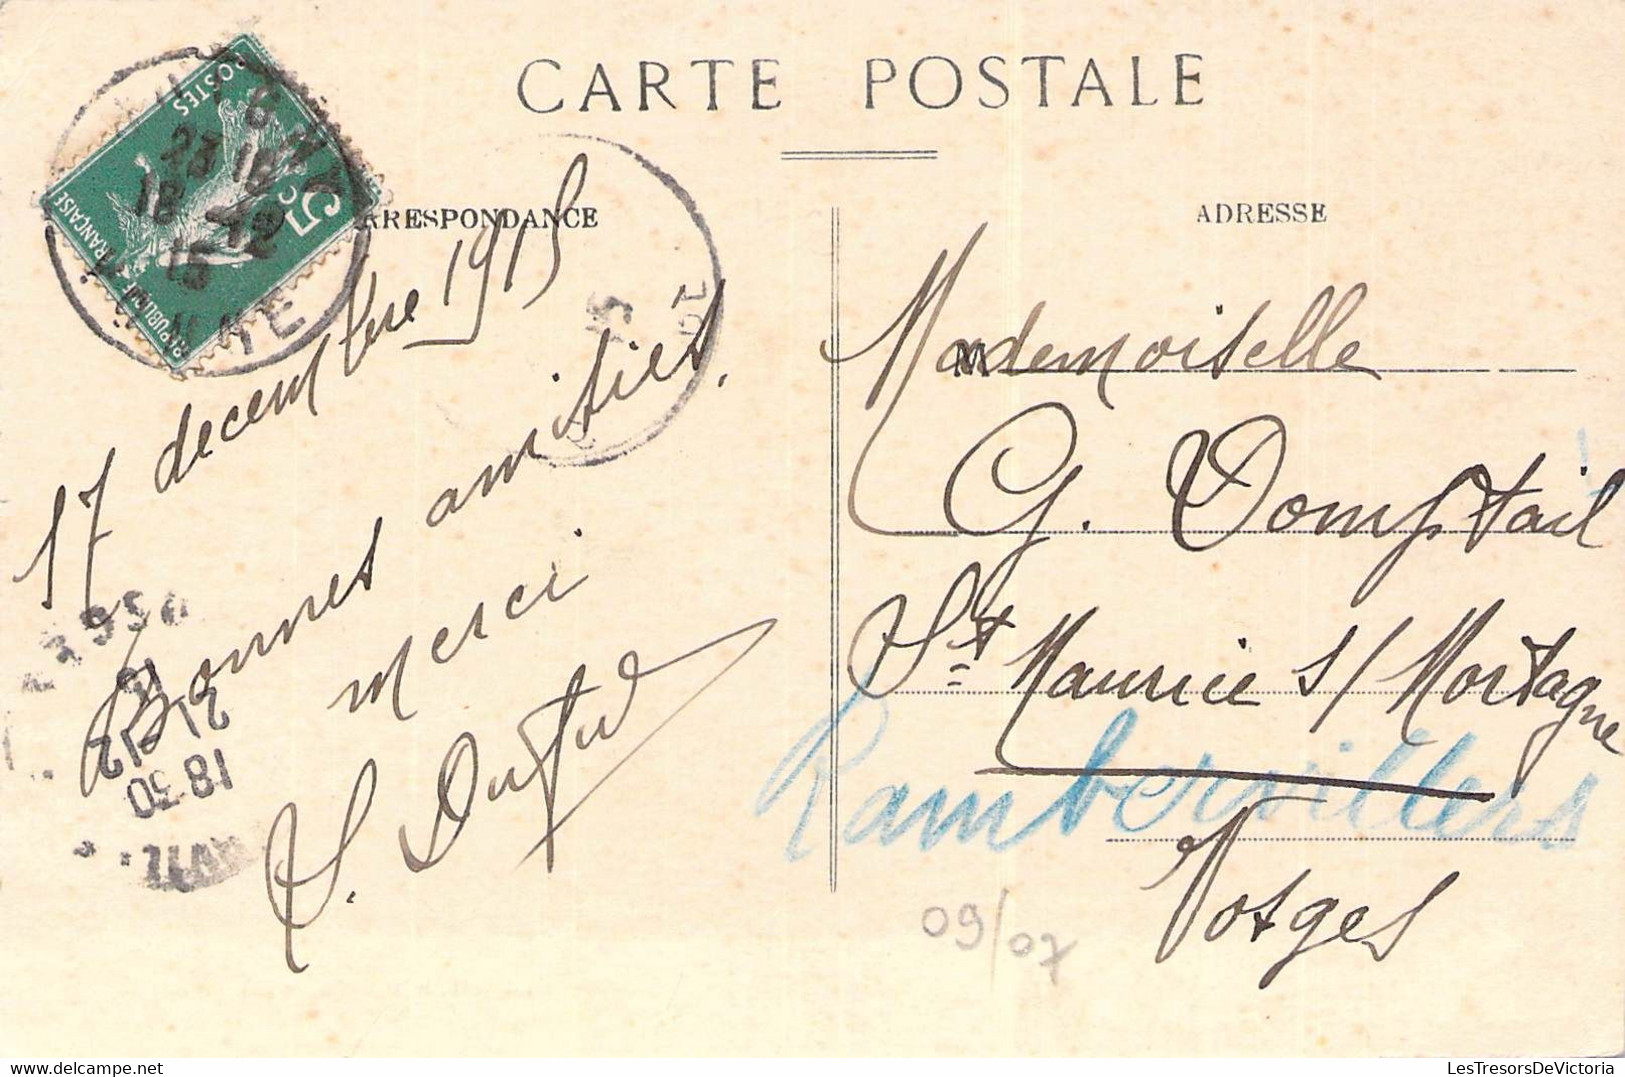 CARTE POSTALE
RRESPONDANCE
ADRESSE
POSTES
5c
REPUBLIQUE FRANÇAISE
23 15
18 -12
15
17 decembre 1915
Bonnes amitiés.
merci
Mademoiselle
G. Domptail
St Maurice s/ Mortagne
Rambervillers
Vosges
21 -12
18 30
09/07
LesTresorsDeVictoria